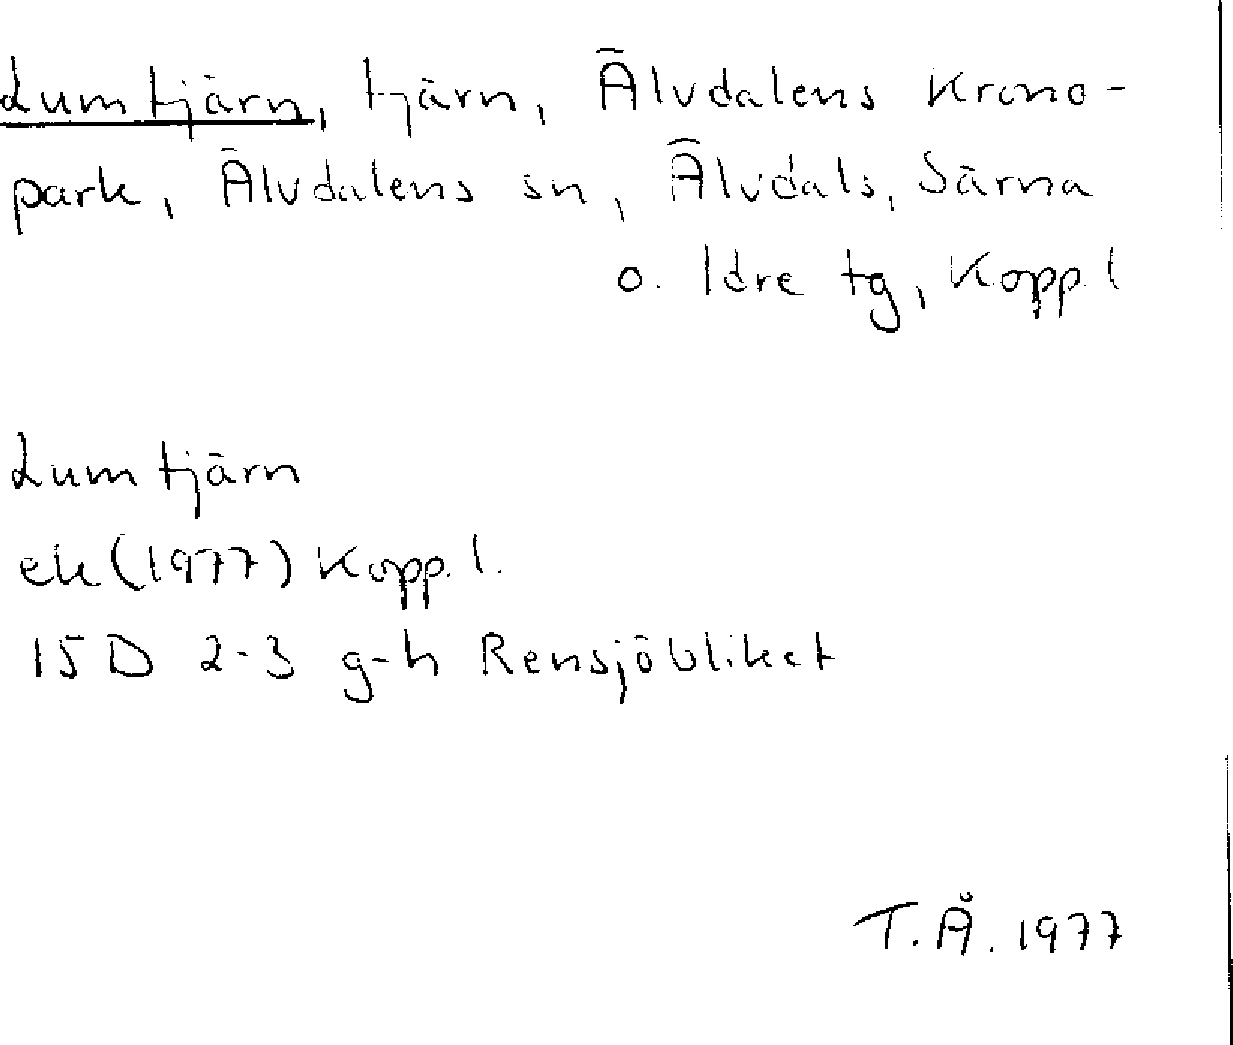 Lumtjärn, tjärn, Älvdalens Krono-
park, Älvdalens sn, Älvdals, Särna
o. Idre tg, Kopp l
Lumtjärn
ek (1977) Kopp. l.
15 D 2-3 g-h Rensjöbliket
T.Å. 1977